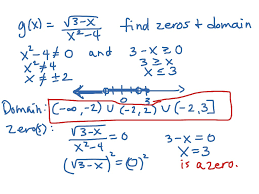 g(x) = √(3-x) / (x²-4) find zeros + domain
x²-4 ≠ 0 and 3-x ≥ 0
x² ≠ 4 3 ≥ x
x ≠ ±2 x ≤ 3
0 3
Domain: [-∞, -2) ∪ (-2, 2) ∪ (-2, 3]
zero(s): √(3-x) / (x²-4) = 0 3-x = 0
(√(3-x))² = (0)² x = 3
is a zero.